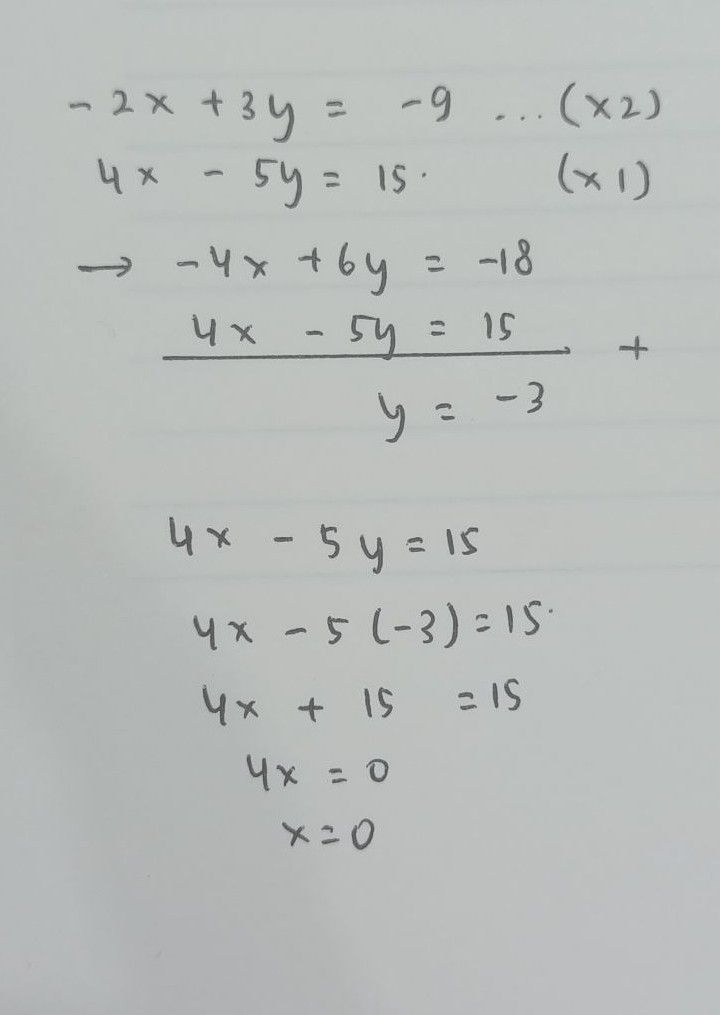 - 2x + 3y = -9 ... (x2)
4x - 5y = 15. (x1)
→ -4x + 6y = -18
4x - 5y = 15 +
y = -3
4x - 5y = 15
4x - 5 (-3) = 15.
4x + 15 = 15
4x = 0
x = 0